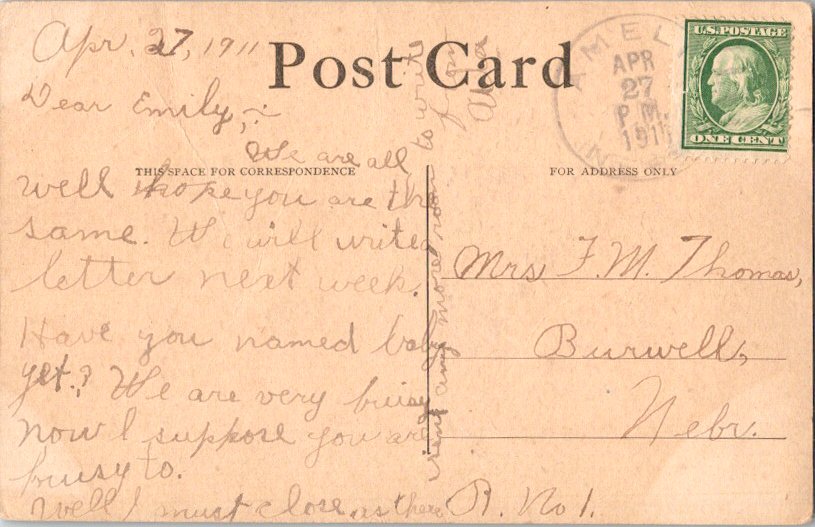 Apr. 27, 1911
Post Card
AMELIA
APR
27
P.M.
1911
U.S. POSTAGE
ONE CENT
Dear Emily,
We are all
THIS SPACE FOR CORRESPONDENCE
FOR ADDRESS ONLY
well hope you are the
same. We will write a
letter next week.
Have you named baby
yet? We are very buisy
now I suppose you are
buisy to.
Well I must close as there
isint any more room to write
from
Mrs F. M. Thomas,
Burwell,
Nebr.
R. No 1.